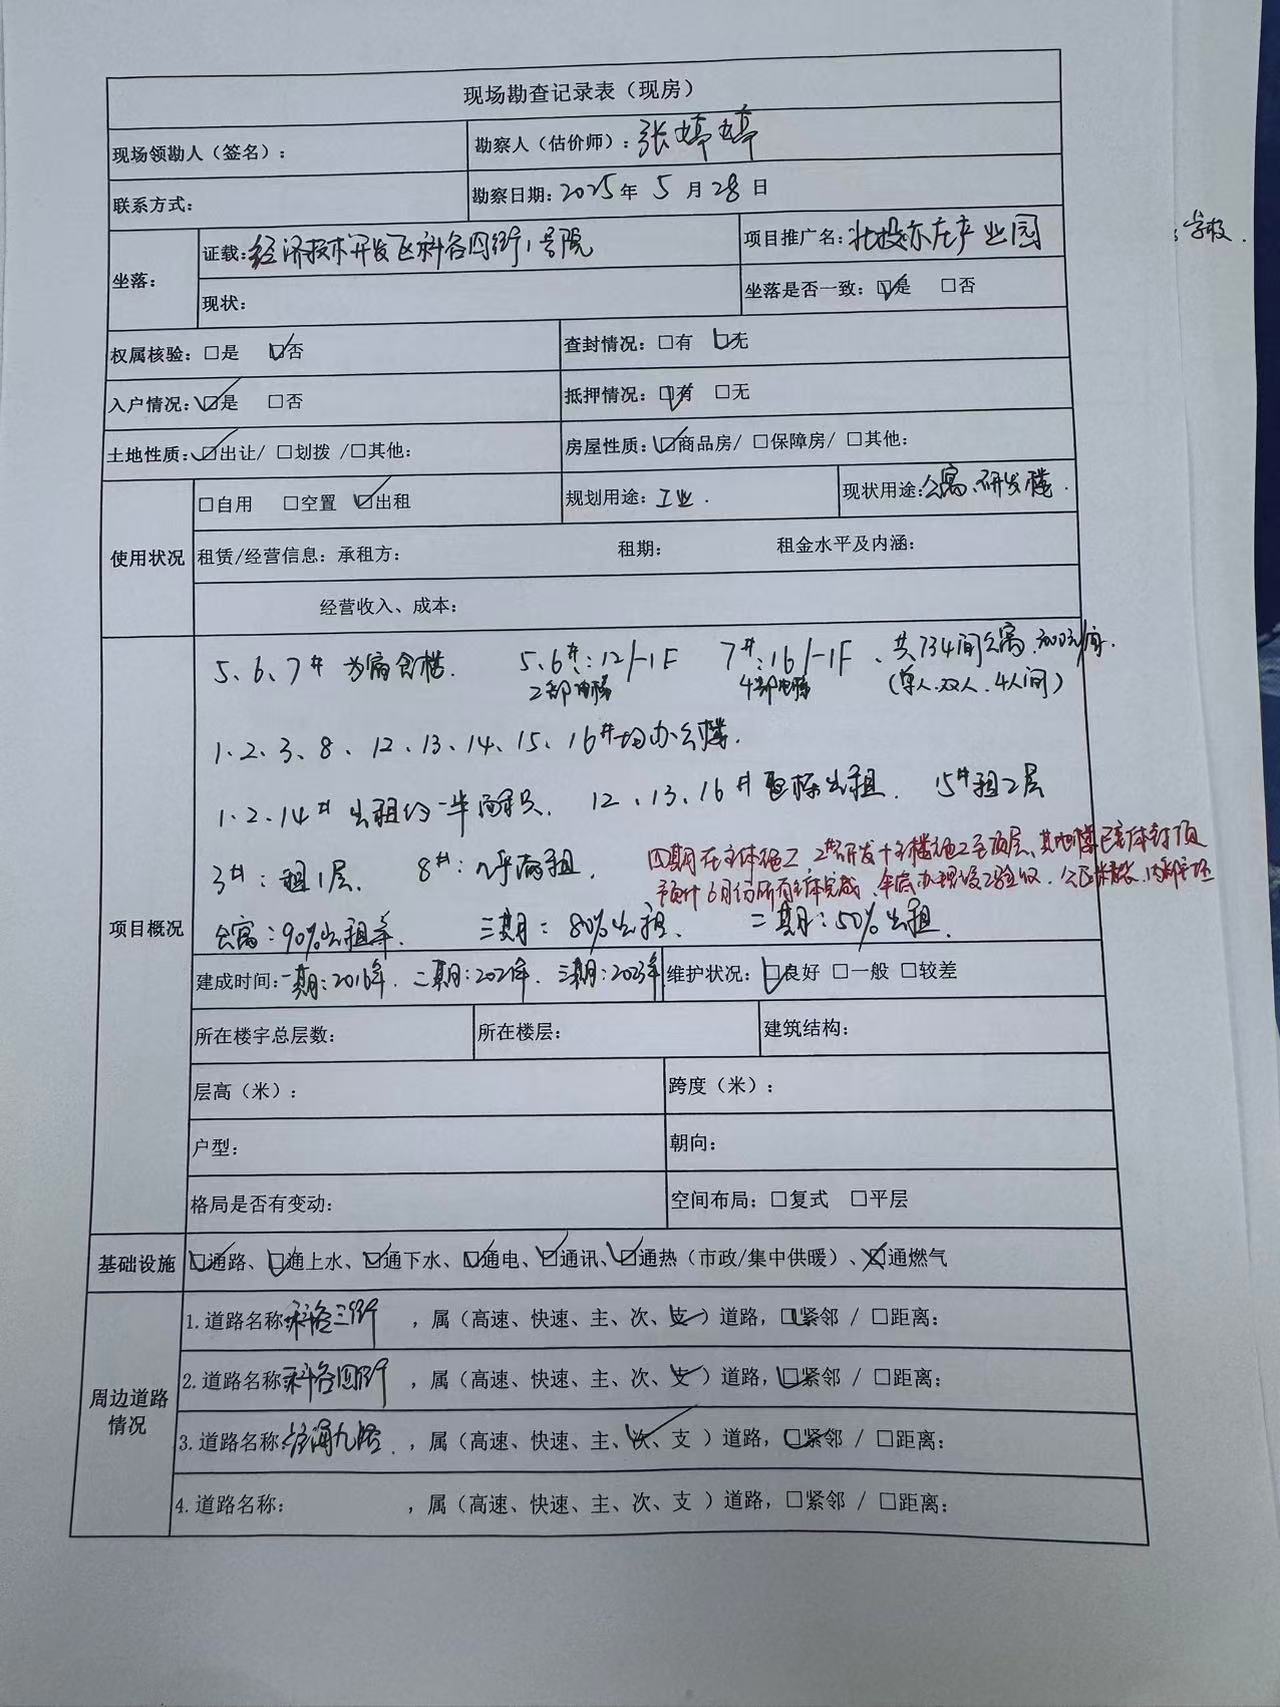 现场勘查记录表（现房）
现场领勘人（签名）：
勘察人（估价师）：张婷婷
联系方式：
勘察日期：2025年 5 月 28 日
坐落：
证载：经济技术开发区科谷四街1号院
项目推广名：北投亦庄产业园
学校.
现状：
坐落是否一致：☑是 □否
权属核验：□是 ☑否
查封情况：□有 ☑无
入户情况：☑是 □否
抵押情况：☑有 □无
土地性质：☑出让/ □划拨 /□其他：
房屋性质：☑商品房/ □保障房/ □其他：
使用状况
□自用 □空置 ☑出租
规划用途：工业.
现状用途：公寓、研发楼.
租赁/经营信息：承租方： 租期： 租金水平及内涵：
经营收入、成本：
项目概况
5、6、7# 为宿舍楼. 5.6#：12/-1F 7#：16/-1F、共734间公寓.
2部电梯 4部电梯 (单人.双人.4人间)
1、2、3、8、12、13、14、15、16#均办公楼.
1.2.14# 出租约一半面积. 12、13、16# 整栋出租. 15#租2层
3#：租1层. 8#：几乎满租.
四期在主体施工，2#研发+主楼施工至顶层、其他楼已主体封顶
预计6月份所有主体完成，年底办理竣工验收.
公寓：90%出租率. 三期：80%出租. 二期：50%出租.
建成时间：一期：2016年. 二期：2021年. 三期：2023年
维护状况：☑良好 □一般 □较差
所在楼宇总层数： 所在楼层： 建筑结构：
层高（米）： 跨度（米）：
户型： 朝向：
格局是否有变动： 空间布局：□复式 □平层
基础设施
☑通路、☑通上水、☑通下水、☑通电、☑通讯、☑通热（市政/集中供暖）、☒通燃气
周边道路情况
1.道路名称：科谷三街 ，属（高速、快速、主、次、支✓）道路，☑紧邻 / □距离：
2.道路名称：科谷四街 ，属（高速、快速、主、次、支✓）道路，☑紧邻 / □距离：
3.道路名称：经海九路. ，属（高速、快速、主、次✓、支 ）道路，☑紧邻 / □距离：
4.道路名称： ，属（高速、快速、主、次、支 ）道路，□紧邻 / □距离：